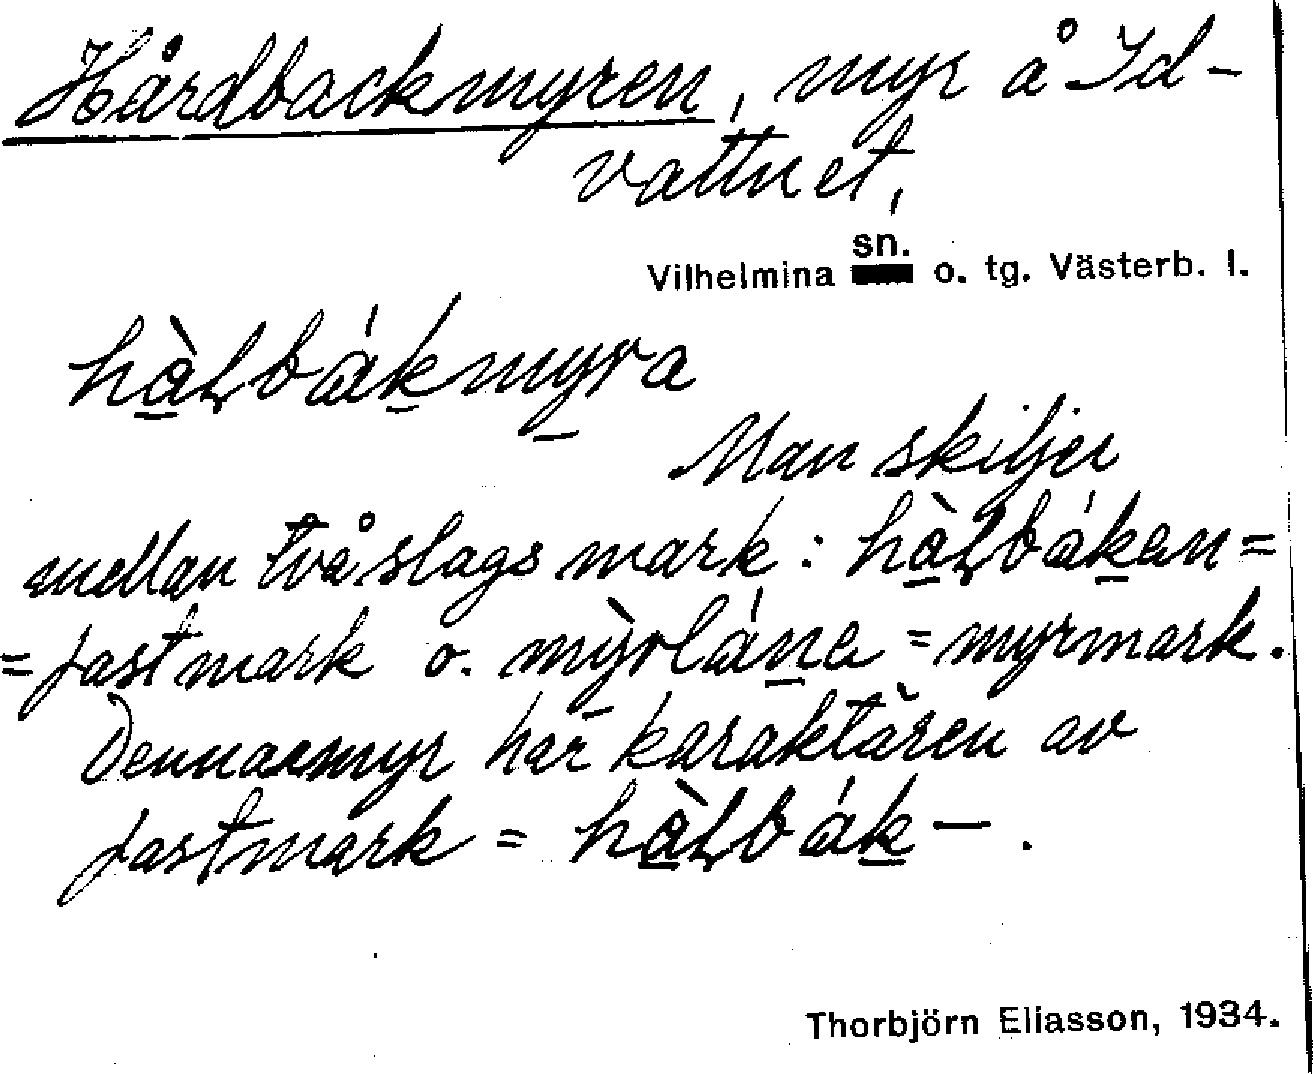 Hårdbackmyren, myr å Id-
vattnet,
sn.
Vilhelmina o. tg. Västerb. l.
hàḷbákmyra
Man skiljer
mellan två slags mark: hàḷbákan =
= fastmark o. mỳrlána = myrmark.
Denna myr har karaktären av
fastmark = hàḷbák — .
Thorbjörn Eliasson, 1934.